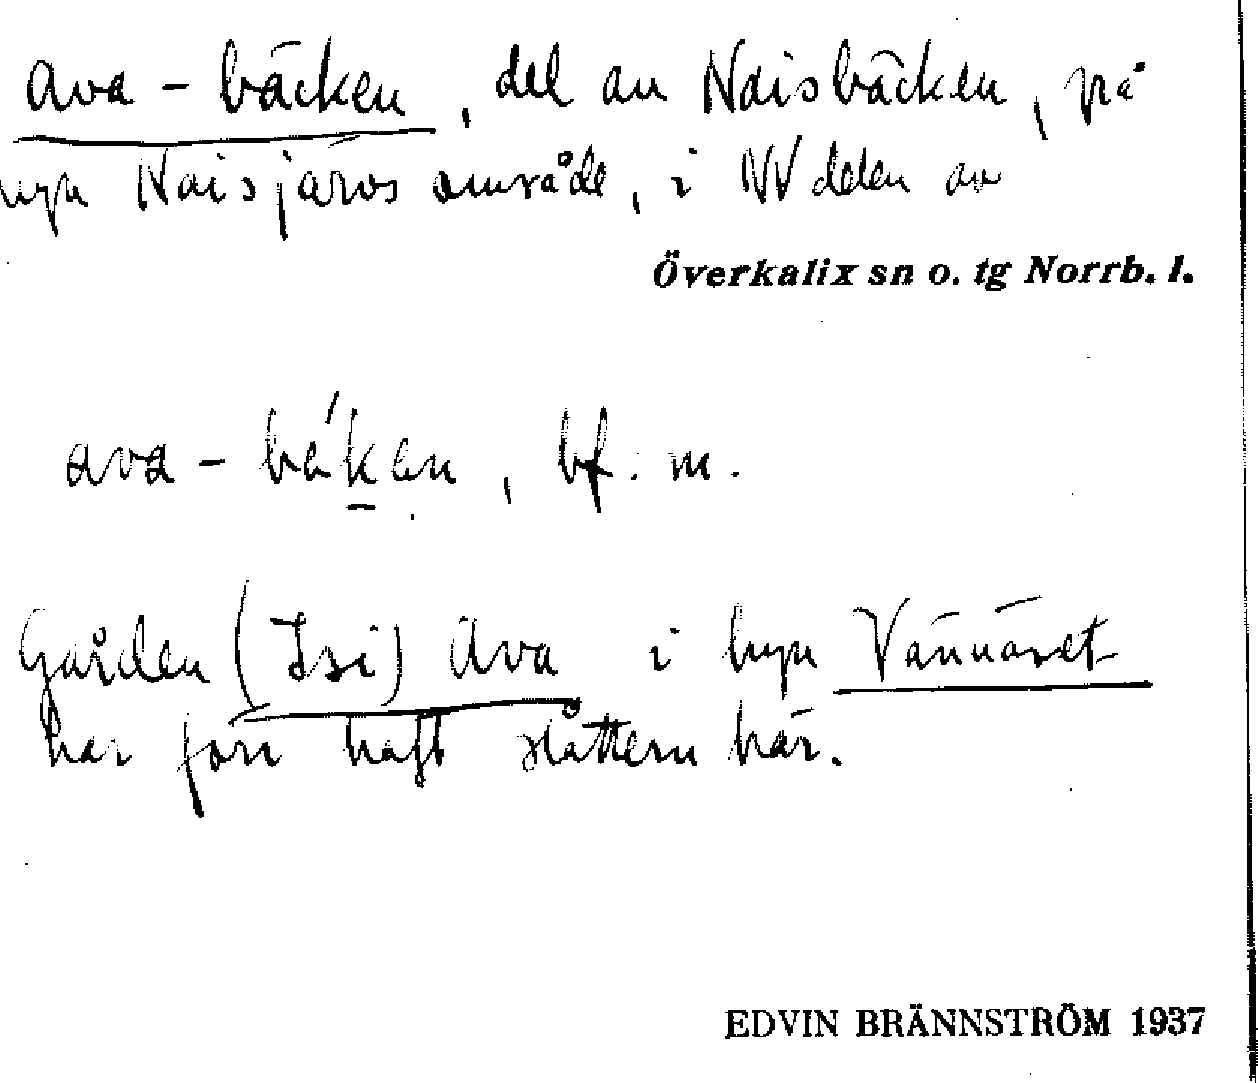 Ava-bäcken, del av Naisbäcken, på
byn Naisjärvs område, i NV delen av
Överkalix sn o. tg Norrb. l.
ava-bék̠en, bf. m.
Gården (Isi) Ava i byn Vännäset
har förr haft slåttern här.
EDVIN BRÄNNSTRÖM 1937